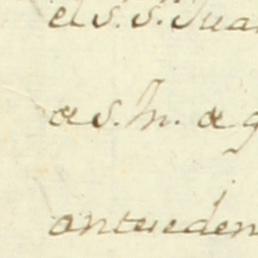 el S.r S.n Jua
de S. M. de g
anteceden